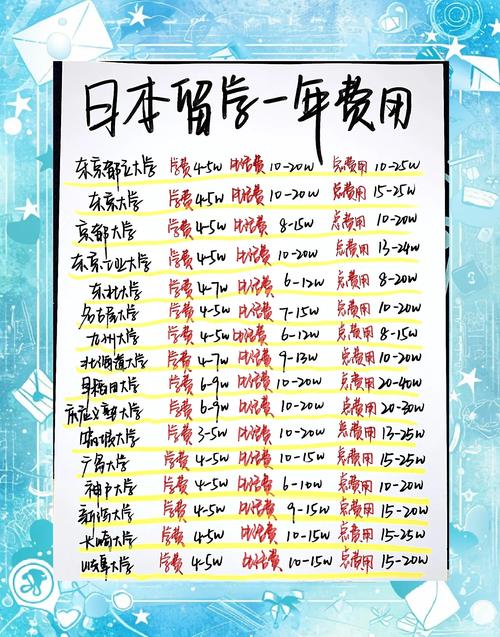 日本留学一年费用
东京都立大学 学费 4-5w 生活费 10-20w 总费用 10-25w
东京大学 学费 4-5w 生活费 10-20w 总费用 15-25w
京都大学 学费 4-5w 生活费 8-15w 总费用 10-20w
东京工业大学 学费 4-5w 生活费 10-20w 总费用 13-24w
东北大学 学费 4-7w 生活费 6-12w 总费用 8-20w
名古屋大学 学费 4-5w 生活费 7-15w 总费用 10-20w
九州大学 学费 4-5w 生活费 6-12w 总费用 8-15w
北海道大学 学费 4-7w 生活费 9-13w 总费用 10-20w
早稻田大学 学费 6-9w 生活费 10-20w 总费用 20-40w
庆应义塾大学 学费 6-9w 生活费 10-20w 总费用 20-30w
筑波大学 学费 3-5w 生活费 10-20w 总费用 13-25w
广岛大学 学费 4-5w 生活费 10-15w 总费用 15-25w
神户大学 学费 4-5w 生活费 6-10w 总费用 10-20w
新潟大学 学费 4-5w 生活费 9-15w 总费用 15-20w
长崎大学 学费 4-5w 生活费 10-15w 总费用 15-25w
大学 学费 4-5w 生活费 10-15w 总费用 15-20w